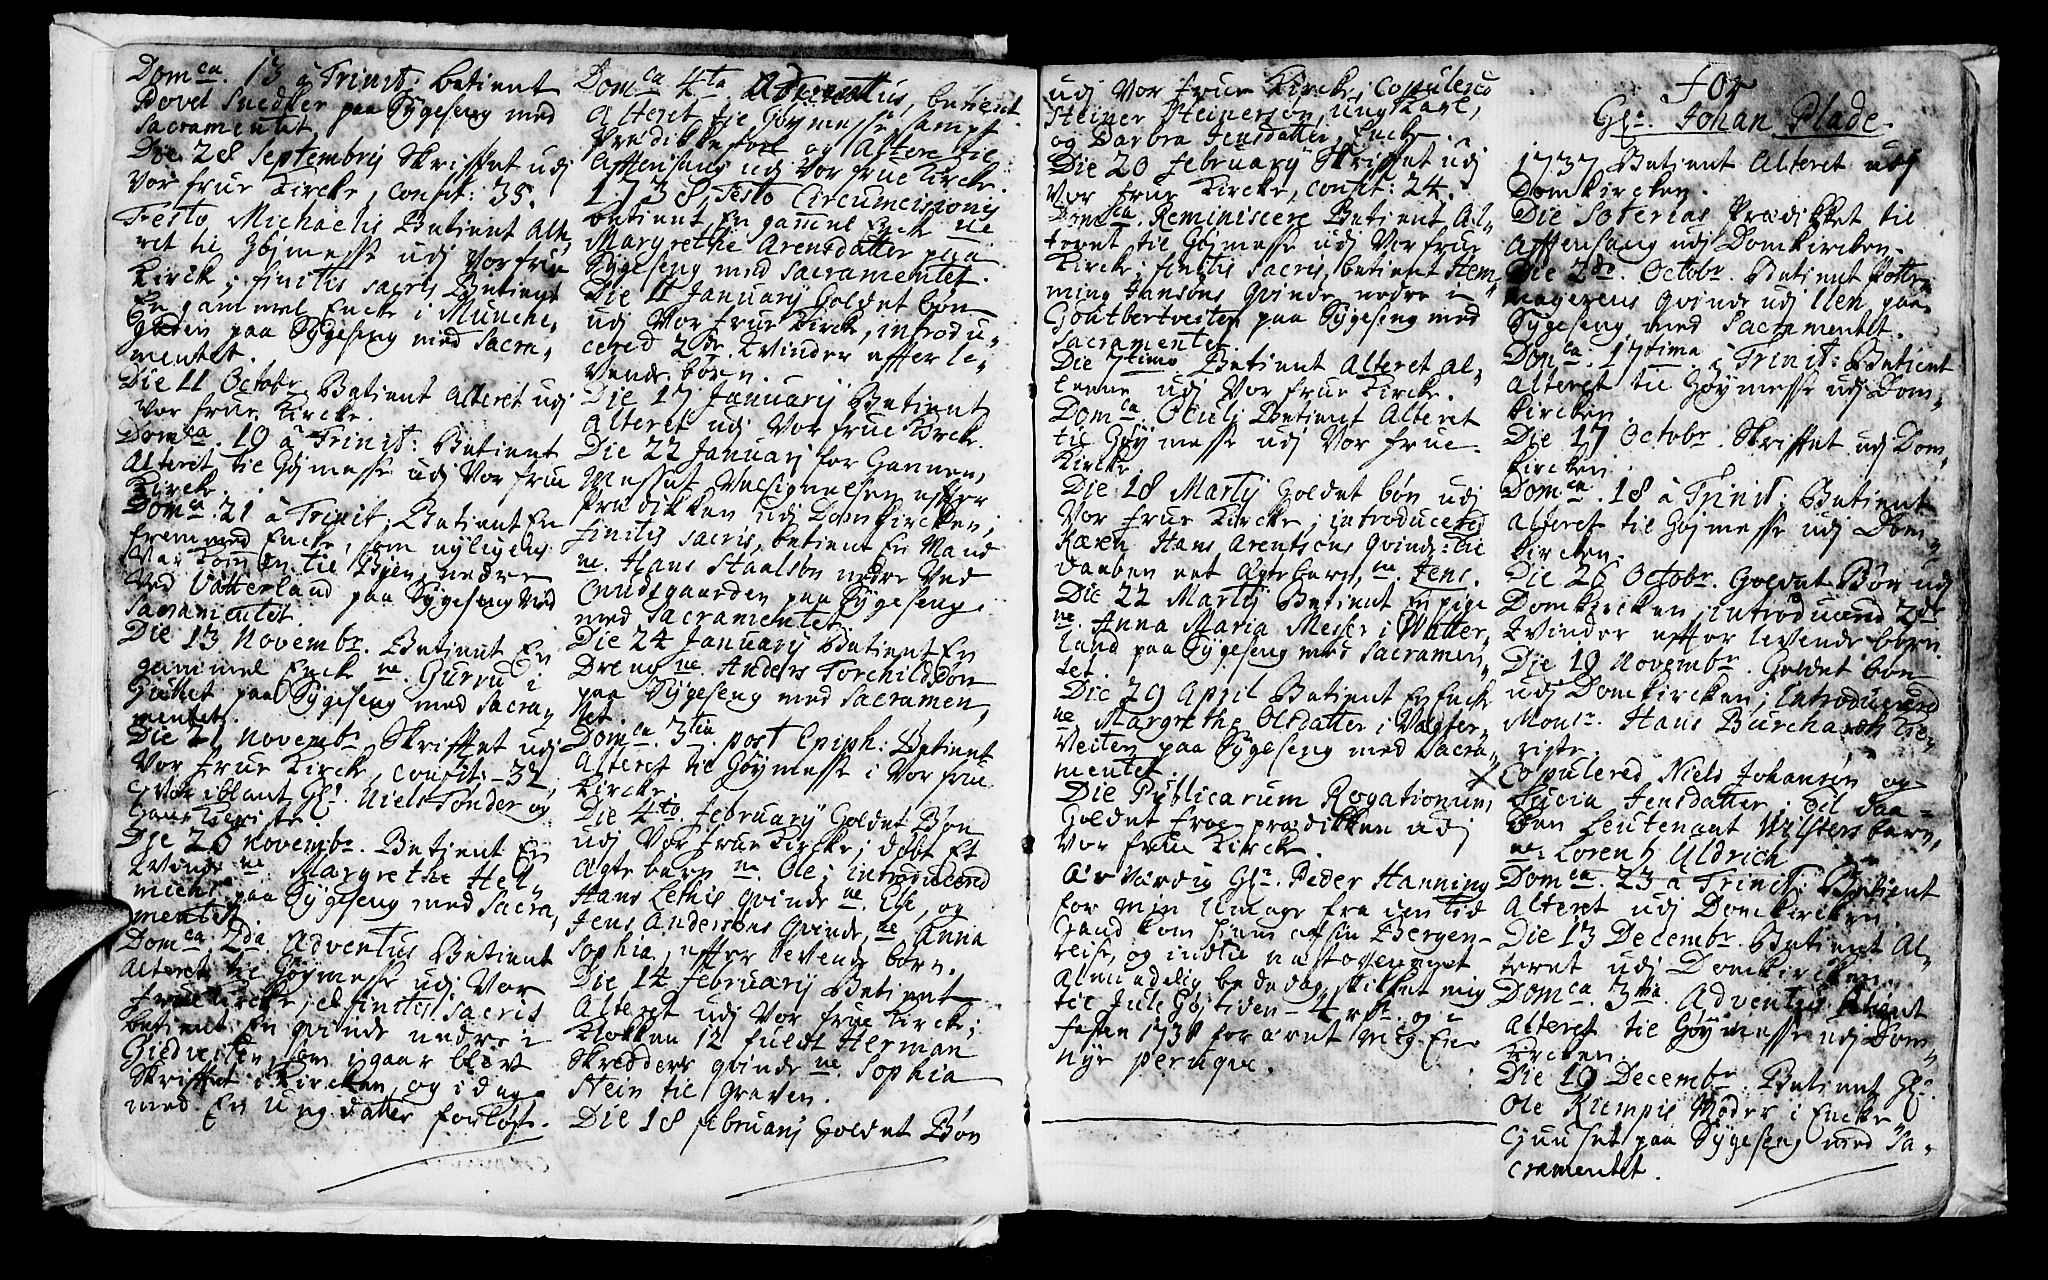 Domca. 13 à Trinit: Betient
Bovel Snedker paa Sygeseng med
Sacramentet.
Die 28 Septembris Skrifftet udj
Vor frue Kircke, Confit: 35.
Festo Michaelis Betient Alte,
ret til Højmesse udj Vor frue
Kirck; finitis sacris Betient
En gammel Encke i Munche,
gaden paa Sygeseng med Sacra,
mentet.
Die 11 Octobr. Betient Alteret udj
Vor frue Kircke.
Domca. 19 à Trinit: Betient
Alteret til Højmesse udj Vor frue
Kircke.
Domca. 21 à Trinit. Betient En
fremmed Encke, som nyligens
var kommen til Byen, nedre
ved Vatterland paa Sygeseng med
Sacramentet.
Die 13 Novembr. Betient En
gammel Encke ne. Gurru i
Huset paa Sygeseng med Sacra,
mentet.
Die 21 Novembr Skrifftet udj
Vor frue Kircke, Confit:-32,
hvor iblant Hr. Niels Tønder og
hans Kieriste.
Die 26 Novembr. Betient En
Kvinde ne. Margrethe Hel,
michs paa Sygeseng med Sacra,
mentet.
Domca. 2da. Adventus Betient
Alteret til Højmesse udj Vor
frue Kircke; et finitis sacris
betient En qvinde nedre i
Giedveiten, som igaar blev
Skrifftet i Kircken, og i dag
med En Ung datter forløst.
Domca 4ta. Adventus, betient
Alteret til Højmesse sampt
Prædikkestoel og Altere til
Afftensang udj Vor frue Kircke.
1738, Festo Circumcisionis
betient En gammel Encke ne
Margrethe Arensdatter paa
Sygeseng med Sacramentet.
Die 11 Januarij Holdet bøn
udj Vor frue Kircke, introdu-
cered 2de. Kvinder effter le-
vende børn.
Die 17 Januarij Betient
Alteret udj Vor frue Kircke.
Die 22 Januarj for Hannen,
Messet Velsignelsen effter
Prædikken udj Domkircken;
finitis sacris, betient En Mand
ne. Hans Staalsøn nedre ved
Cnudsgaarden paa Sygeseng
med Sacramentet.
Die 24 Januarij Betient En
Dreng ne. Anders Torchildsøn
paa Sygeseng med Sacramen,
tet.
Domca. 3tia. post Epiph: Betient
Alteret til Højmesse i Vor frue
Kircke.
Die 4to. Februarij Holdet Bøn
udj Vor frue Kircke; døbt Et
Ægte barn ne. Ole; introducered
Hans Lethis qvinde ne. Else, og
Jens Andersøns Qvinde, ne Anna
Sophia, effter levende børn.
Die 14 Februarij Betient
Alteret udj Vor frue Kirck;
Klokken 12 fuldt Herman
Skredders qvinde ne. Sophia
Stein til Graven.
Die 18 februarij Holdet Bøn
udj Vor frue Kircke; Copulered
Steiner Steinersøn, ung Karl,
og Barbra Jensdatter, Encke.
Die 20 February Skrifftet udj
Vor frue Kircke, confit: 24.
Domca. Reminiscere Betient Al-
teret til Højmesse udj Vor frue
Kircke; finitis sacris, betient Hem
ming Jansøns Qvinde nedre i
Goutbertveiten paa Sygeseng med
Sacramentet.
Die 7timo. Betient Alteret al-
lenne udj Vor frue Kircke.
Domca Oculi Betient Alteret
til Højmesse udj Vor frue
Kircke.
Die 18 Martij Holdet bøn udj
Vor frue Kircke; introducered
Karen Hans Arentsøns Qvinde: til
daaben et Ægtebarn, ne. Jens.
Die 22 Martij Betient En pige
ne. Anna Maria Meiser i Vatter,
land paa Sygeseng med Sacramen,
tet.
Die 29 April Betient En Encke
ne. Margrethe Olsdatter i Vagter,
Veiten paa Sygeseng med Sacra,
mentet.
Die Publicarum Rogationum,
Holdet froeprædikken udj
Vor frue Kircke.
Ær Værdig Hr. Peder Hanning
for min Umage fra den tid
hand kom hiem af sin Bergen-
reise, og indtil nestovenmelt
Almindelig bededag, skikket mig
til Jule Høytiden - 4 rd. og i
fasten 1738 foræret mig En
nye perique.
For
Hr. Johan Plade.
1737 Betient Alteret udj
Domkircken.
Die Soterias Prædikket til
Afftensang udj Domkircken.
Die 2de. Octobr. Betient Potte-
magerens Qvinde udj Ilen paa
Sygeseng med Sacramentet.
Domca. 17tima. à Trinit: Betient
Alteret til Højmesse udj Dom,
kircken.
Die 17 Octobr. Skrifftet udj Dom,
kircken.
Domca. 18 à Trinit: Betient
Alteret til Højmesse udj Dom,
kircken.
Die 26 Octobr. Holdet Bøn udj
Domkircken, introducered 2de
Kvinder effter levende børn.
Die 19 Novembr. Holdet bøn
udj Domkircken; introducered
Monsr. Hans Burchards Kie-
riste.
Copulered Niels Johansøn og
Lucia Jensdatter; til daa-
ben Leutenant Wilsters barn,
ne. Lorentz Uldrich
Domca. 23 à Trinit: Betient
Alteret udj Domkircken.
Die 13 Decembr. Betient Al-
teret udj Domkircken.
Domca. 3tia. Adventus Betient
Alteret til Højmesse udj Dom,
kircken.
Die 19 Decembr. Betient Hr.
Ole Kiempis Moder i Encke
Huuset paa Sygeseng med Sa-
cramentet.